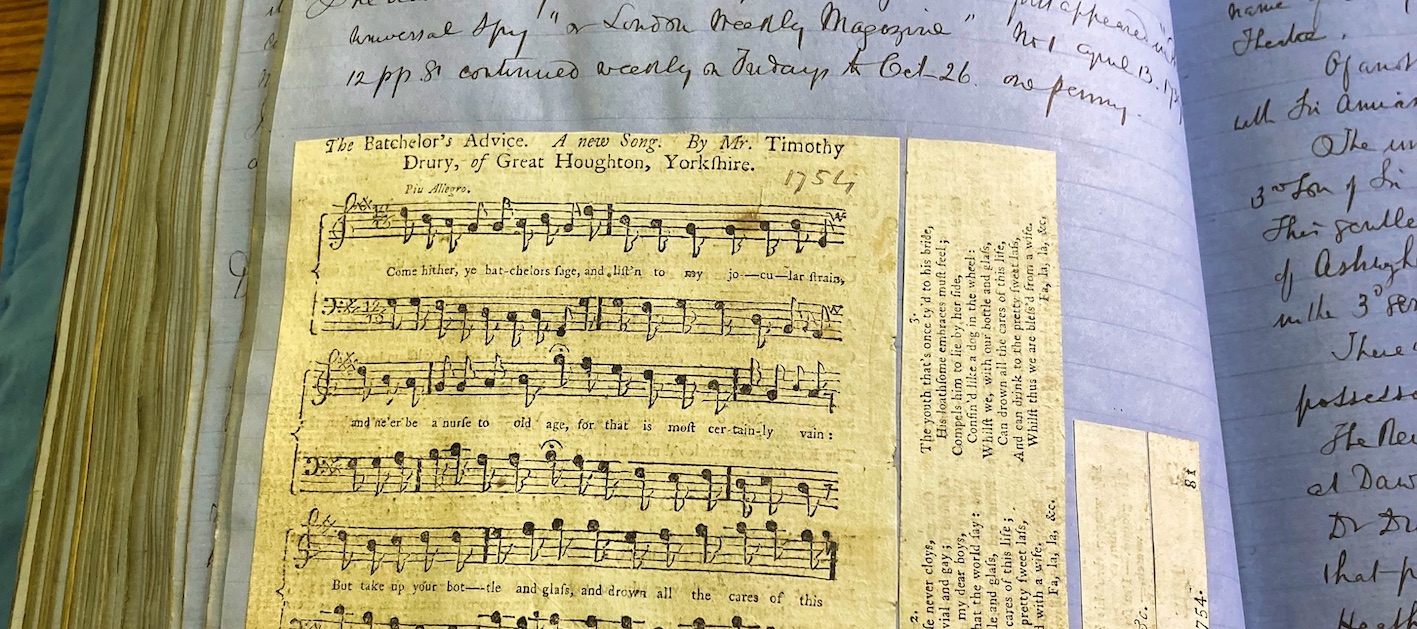 Universal Spy" or London Weekly Magazine" No 1 April 13.
12 pp. 8° continued weekly on Fridays to Oct 26. one penny.
The Batchelor's Advice. A new Song. By Mr. Timothy
Drury, of Great Houghton, Yorkſhire.
1754
Piu Allegro.
Come hither, ye bat-chelors ſage, and liſt'n to my jo—cu—lar ſtrain,
and ne'er be a nurſe to old age, for that is moſt cer-tain-ly vain :
But take up your bot—tle and glaſs, and drown all the cares of this
2.
ſe never cloys,
vial and gay ;
my dear boys,
hat the world ſay :
le and glaſs,
cares of this life ;
pretty ſweet laſs,
d with a wife.
Fa, la, la, &c.
3.
The youth that's once ty'd to his bride,
His loathſome embraces muſt feel ;
Compels him to lie by her ſide,
Confin'd like a dog in the wheel :
Whilſt we, with our bottle and glaſs,
Can drown all the cares of this life,
And can drink to the pretty ſweet laſs,
Whilſt thus we are bleſs'd from a wife.
Fa, la, la, &c.
81
754.
&c.
name of
Theatre.
Of anot
with Sir
The
3rd Son of Sir
This gentle
of
in the 3d
There
possesso
The Rev
at Daw
Dr Dr
that p
Heath